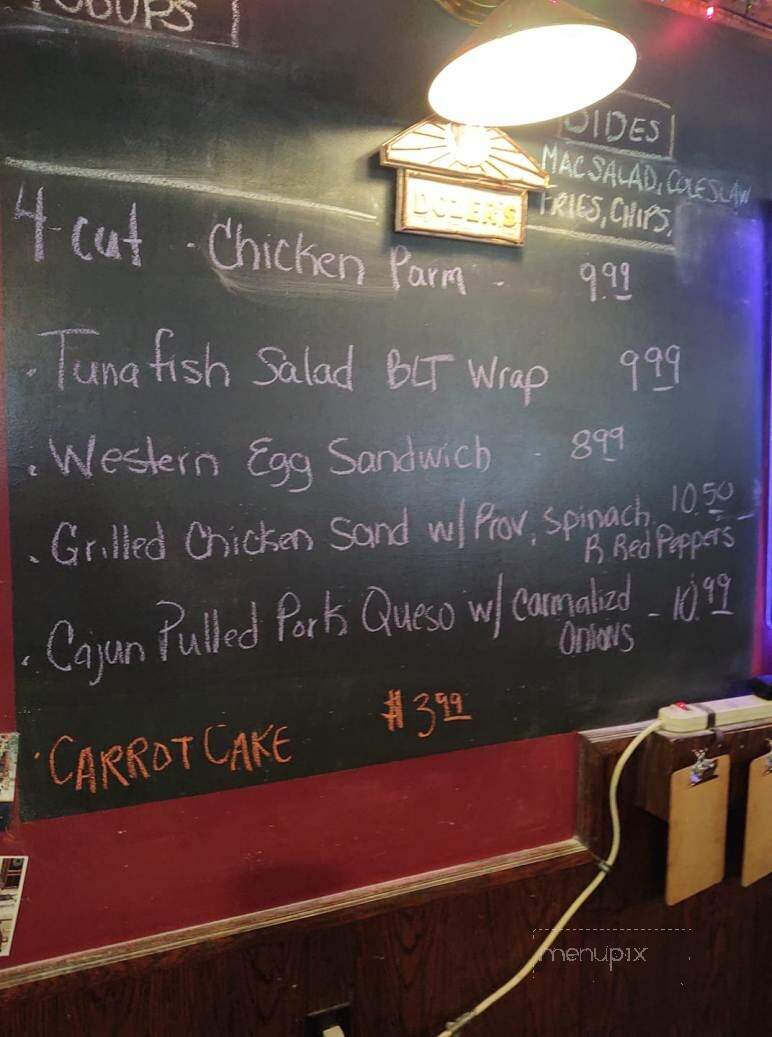 SOUPS
SIDES
MAC SALAD, COLESLAW
FRIES, CHIPS,
4-cut - Chicken Parm - 9.99
. Tunafish Salad BLT Wrap 9.99
. Western Egg Sandwich - 8.99
. Grilled Chicken Sand w/ Prov, Spinach 10.50
R Red Peppers
. Cajun Pulled Pork Queso w/ Carmalizd - 10.99
Onions
. CARROT CAKE $3.99
menupix